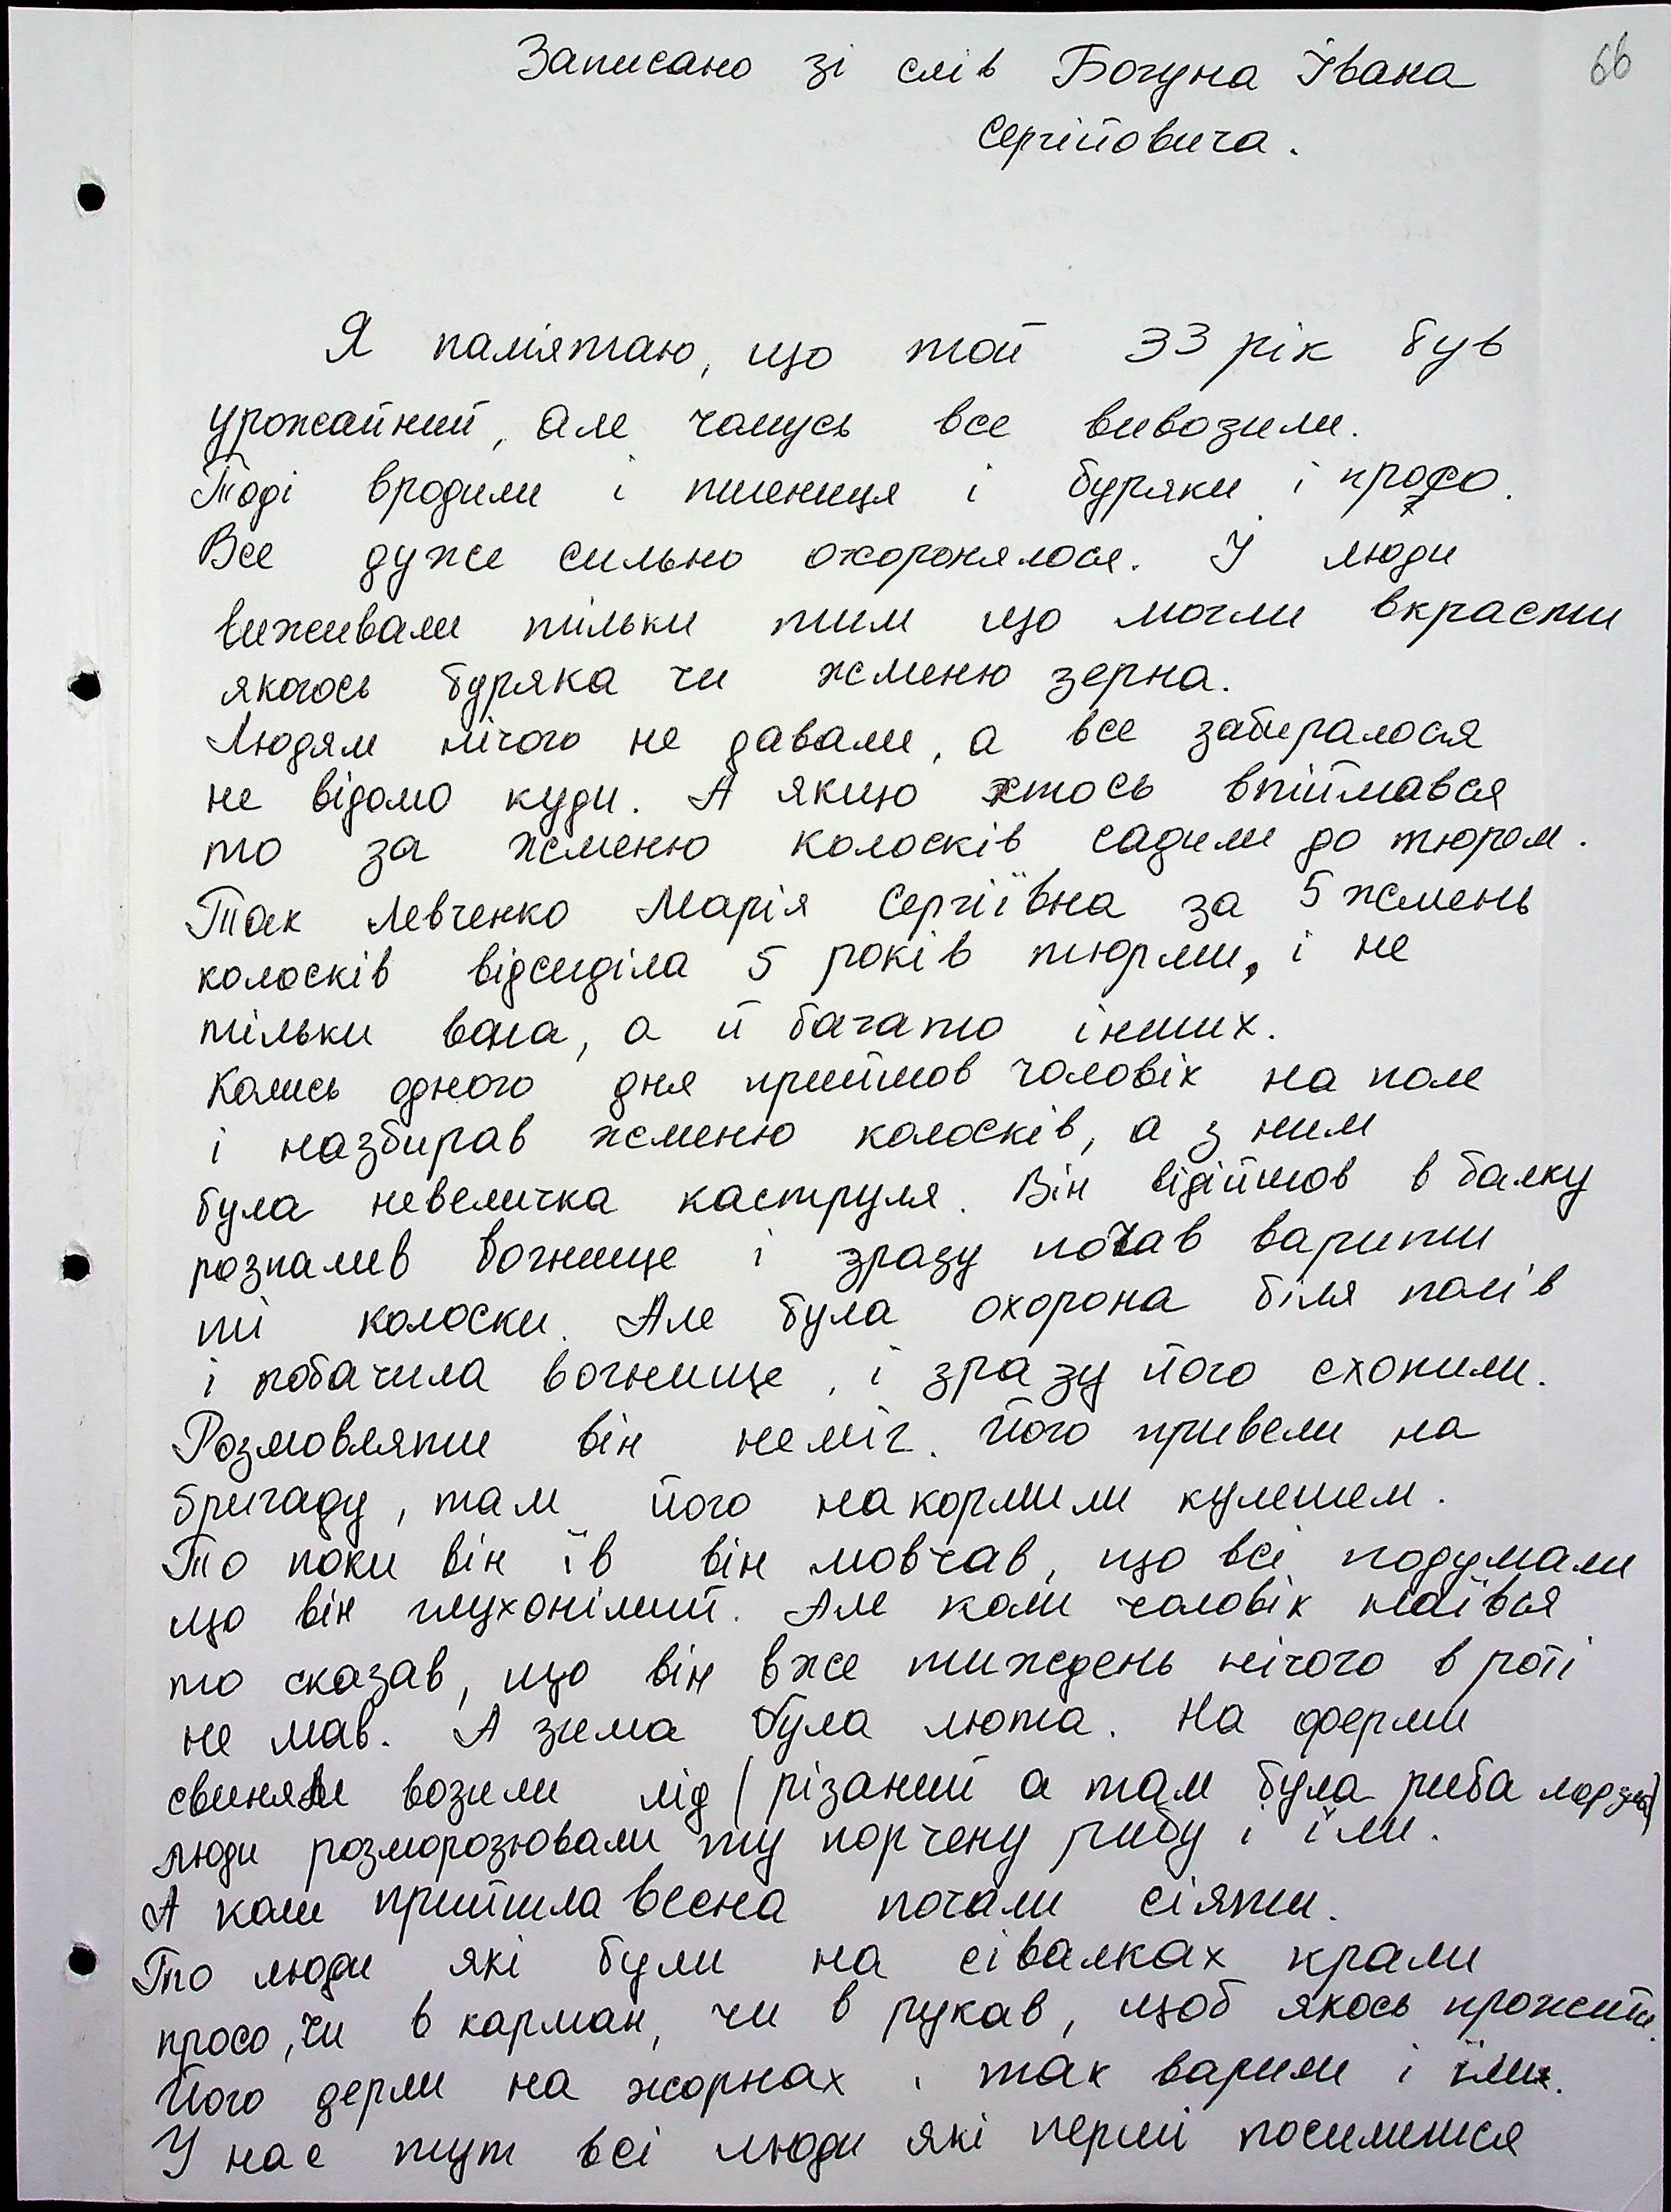 Записано зі слів Богуна Івана
66
Сергійовича.
Я паміятаю, що той 33 рік був
урожайний, але чамусь все вивозили.
Тоді вродили і пшениця і буряки і просо.
Все дуже сильно охоронялося. І люди
виживали тільки тим що могли вкрасти
якогось буряка чи жменю зерна.
Людям нічого не давали, а все забиралося
не відомо куди. А якщо хтось впіймався
то за жменю колосків садили до тюрем.
Так Левченко Марія Сергіївна за 5 жмень
колосків відсиділа 5 років тюрми, і не
тільки вона, а й багато інших.
Колись одного дня прийшов чоловік на поле
і назбирав жменю колосків, а з ним
була невеличка каструля. Він відійшов в балку
розпалив вогнище і зразу почав варити
ті колоски. Але була охорона біля полів
і побачила вогнище, і зразу його схопили.
Розмовляти він неміг. Його привели на
бригаду, там його накормили кулешем.
То поки він їв він мовчав, що всі подумали
що він глухонімий. Але коли чоловік наївся
то сказав, що він вже тиждень нічого в роті
не мав. А зима була люта. На ферми
свиням возили лід (різаний а там була риба мерзла)
люди розморозювали ту порчену рибу і їли.
А коли прийшла весна почали сіяти.
То люди які були на сівалках крали
просо, чи в карман, чи в рукав, щоб якось прожити.
Його дерли на жорнах і так варили і їли.
У нас тут всі люди які перші поселилися